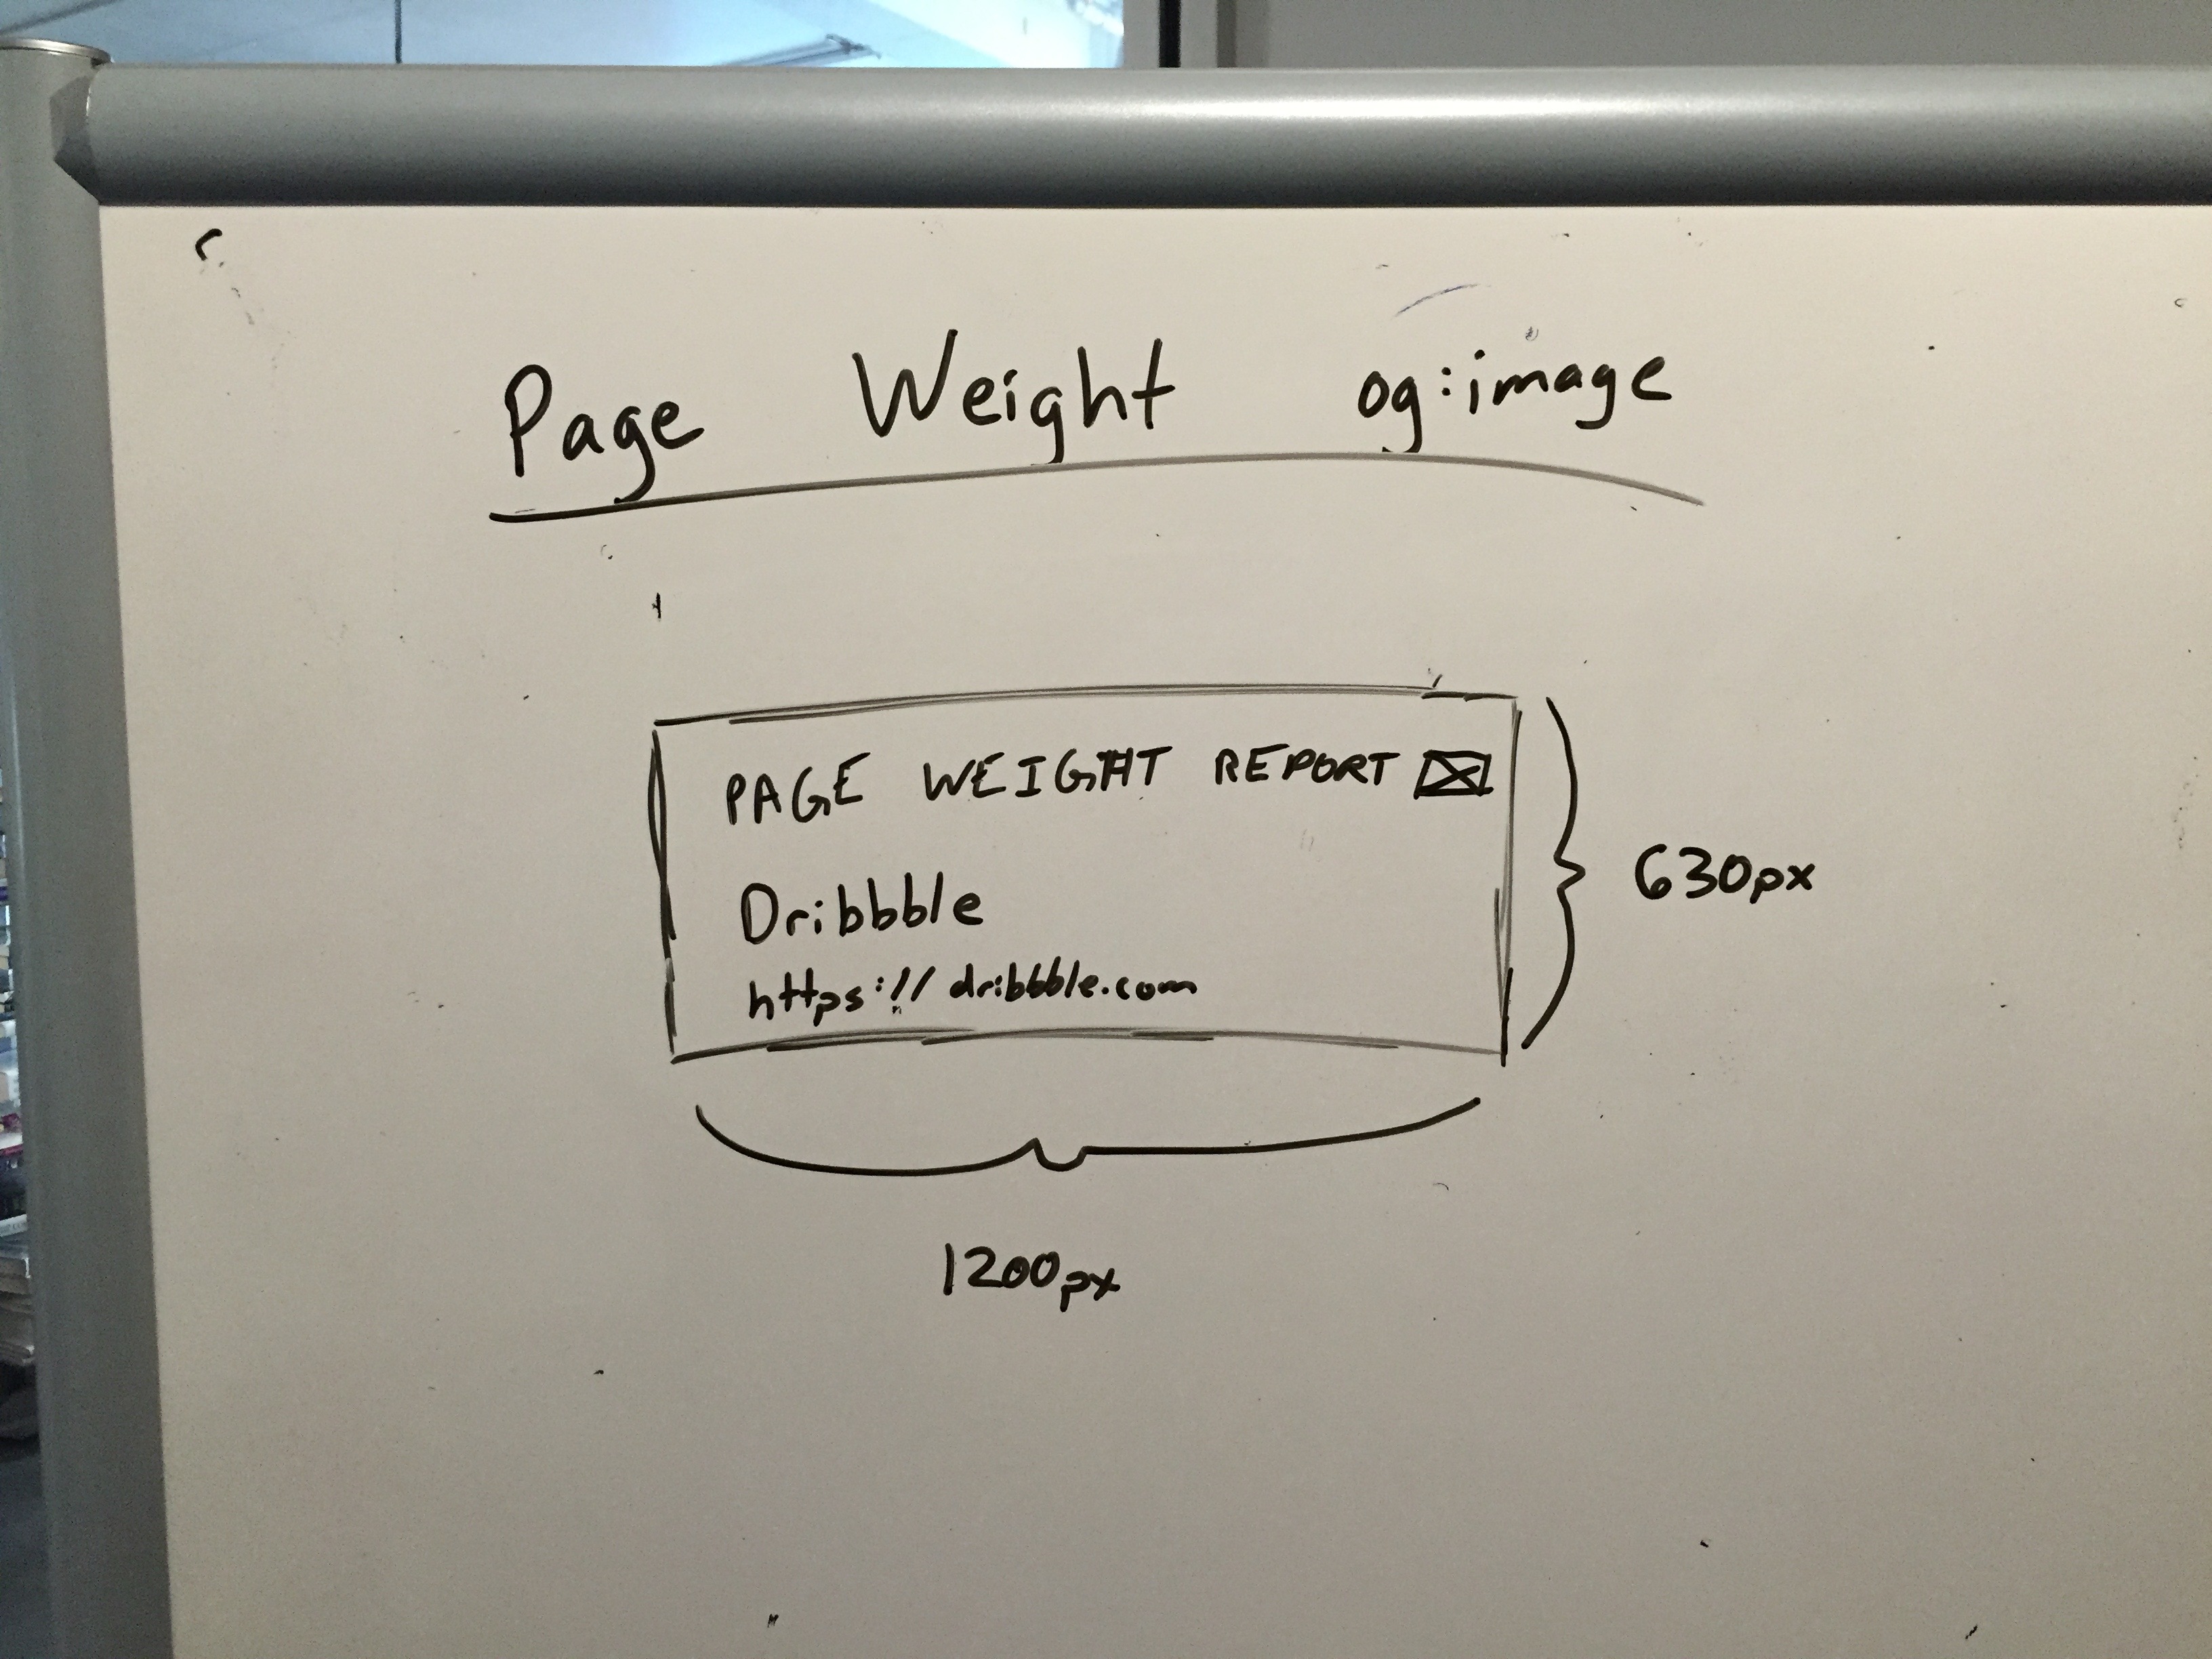 Page Weight og:image
PAGE WEIGHT REPORT
Dribbble
https://dribbble.com
630px
1200px